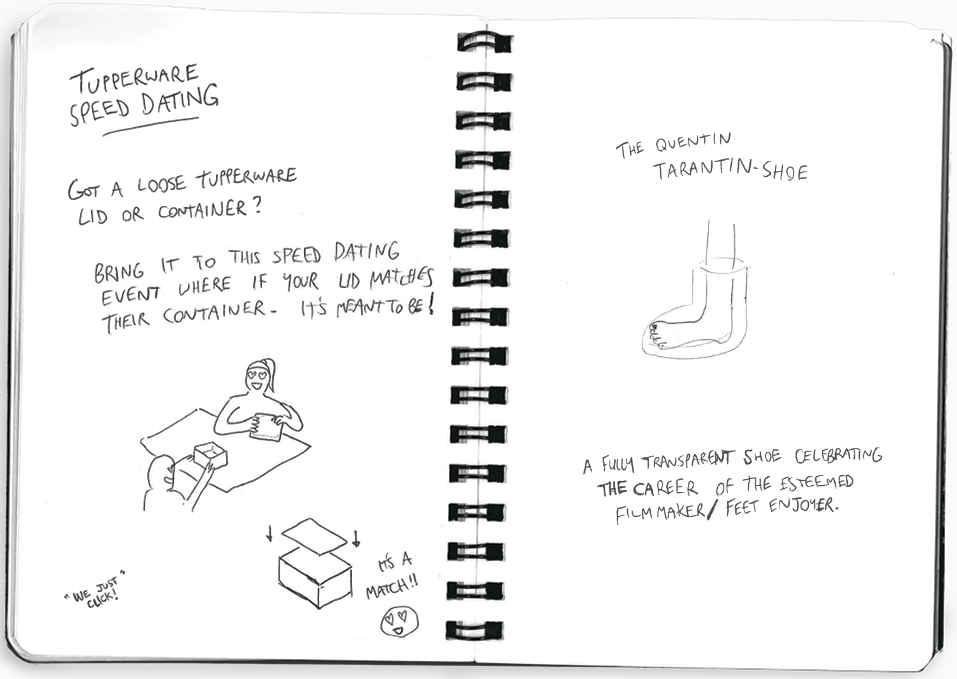 TUPPERWARE
SPEED DATING
GOT A LOOSE TUPPERWARE
LID OR CONTAINER?
BRING IT TO THIS SPEED DATING
EVENT WHERE IF YOUR LID MATCHES
THEIR CONTAINER. IT'S MEANT TO BE!
IT'S A
MATCH!!
"WE JUST
CLICK!"
THE QUENTIN
TARANTIN-SHOE
A FULLY TRANSPARENT SHOE CELEBRATING
THE CAREER OF THE ESTEEMED
FILMMAKER/FEET ENJOYER.